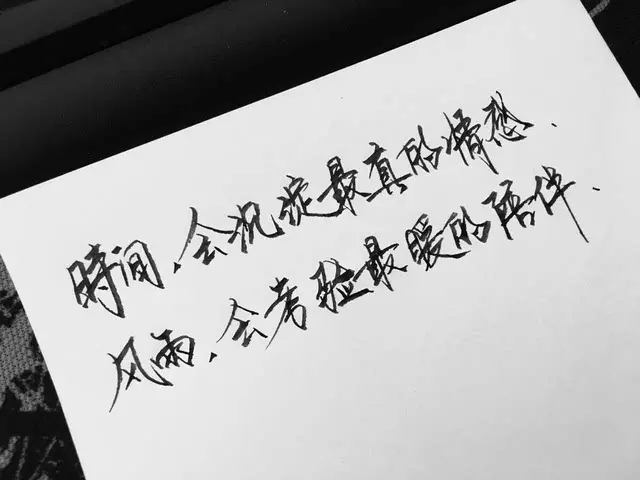 時间,会沉淀最真的情愁.
风雨,会考验最暖的陪伴.